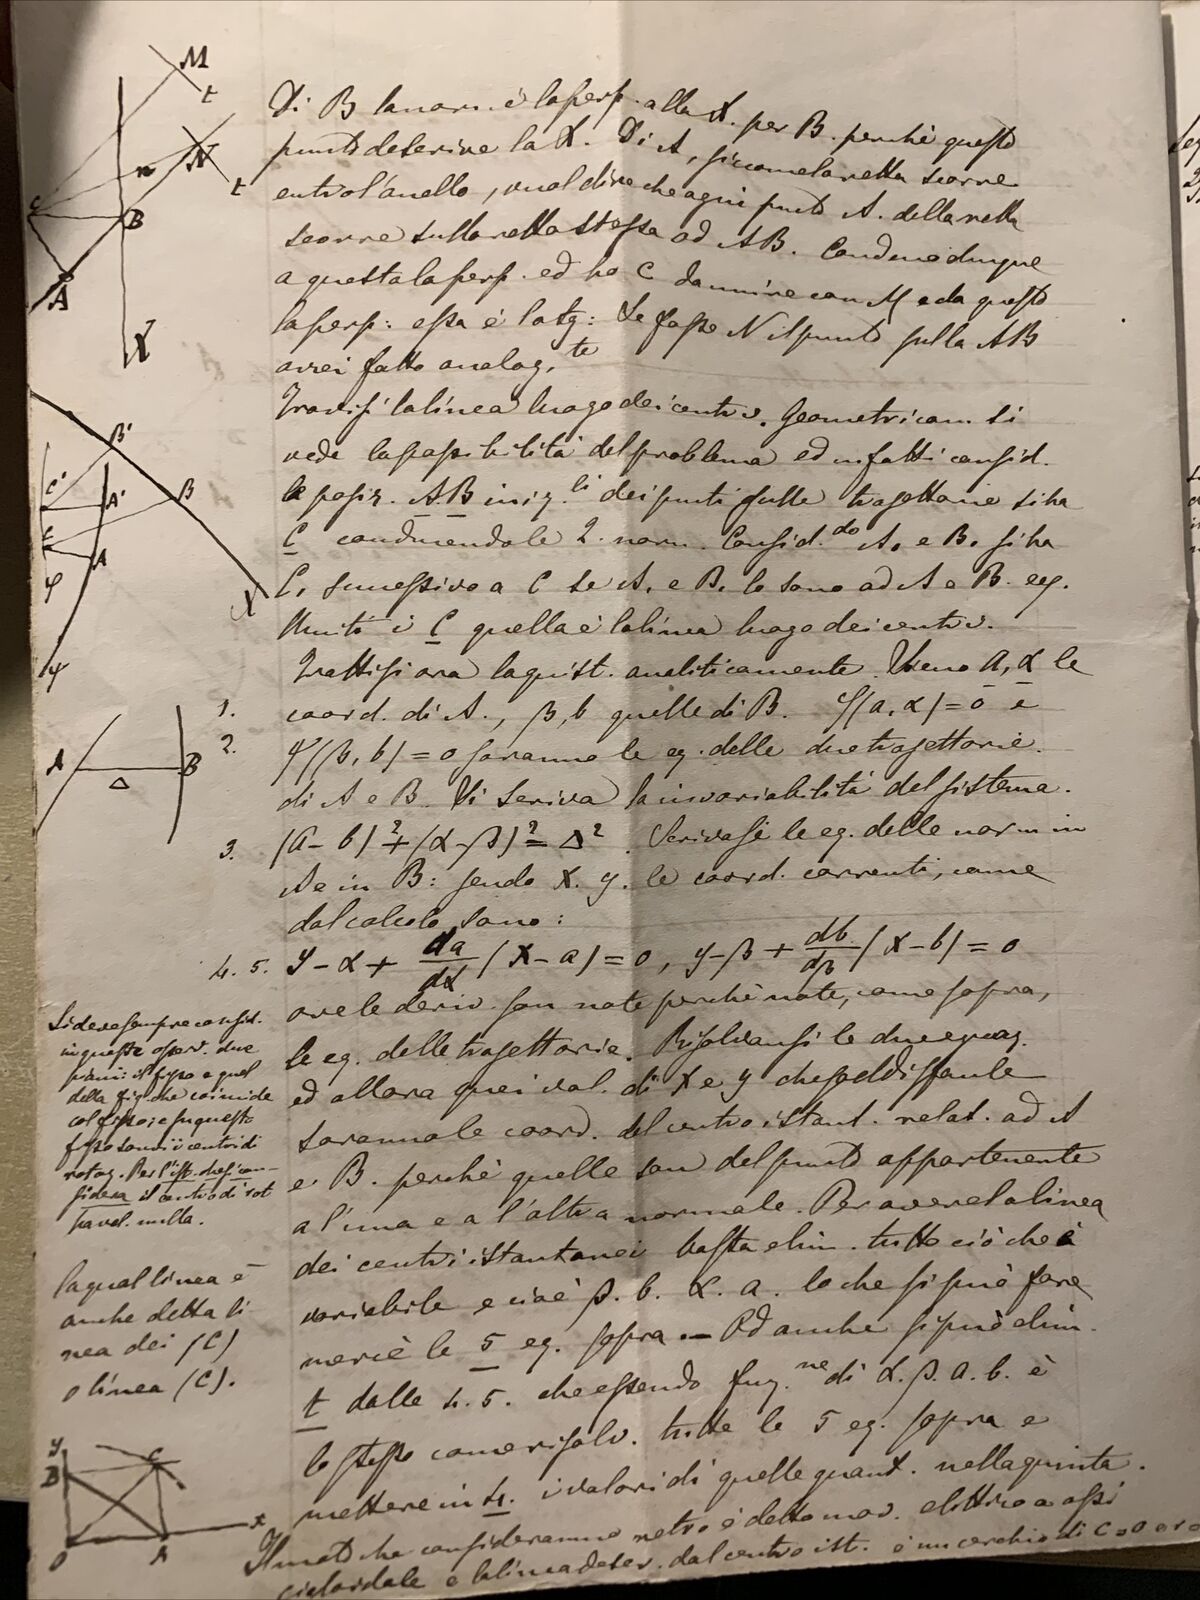 Di B la norm. è la perp. alla X. per B. perchè questo
punto descrive la X. Di A, siccome la retta scorre
entro l'anello, vuol dire che ogni punto A. della retta
scorre sulla retta stessa ad AB. Conduco dunque
a questa la perp. ed ho C da unire con M e da questo
la perp: essa è la tg: Se fosse N il punto sulla AB
avrei fatto analog.te
Trovisi la linea luogo dei centri. Geometricam. si
vede la possibilità del problema ed infatti consid.
le posiz. A.B iniz.li dei punti sulle trajettorie si ha
C conducendo le 2. norm. Consid.do A, e B, si ha
C, successivo a C se A, e B, lo sono ad A e B. ecc.
Uniti i C quella è la linea luogo dei centri.
Trattisi ora la quist. analiticamente. Sieno a, α le
1. coord. di A., β, b quelle di B. φ(a,α)=0 e
2. ψ(β,b)=0 saranno le eq. delle due trajettorie
di A e B. Si scriva la invariabilità del sistema.
3. (a-b)²+(α-β)²=Δ². Scrivasi le eq. delle norm in
A e in B: sendo X. y. le coord. correnti, come
dal calcolo sono:
4. 5. y-α+ da/dα (X-a)=0, y-β+ db/dβ (X-b)=0
ove le deriv. son note perchè note, come sopra,
le eq. delle trajettorie. Risolvansi le due equaz.
ed allora quei val. di X e y che soddisfanle
saranno le coord. del centro istant. relat. ad A
e B. perchè quelle son del punto appartenente
a l'una e a l'altra normale. Per avere la linea
dei centri istantanei basta elim. tutto ciò che è
variabile e cioè β. b. α. a. lo che si può fare
mercè le 5 eq. sopra — Od anche si può elim.
t dalle 4. 5. che essendo funz.ne di α. β. a. b. è
lo stesso come risolv. tutte le 5 eq. sopra e
mettere in 4. i valori di quelle quant. nella quinta.
Il moto che consideranno è detto mov. elittico o
cicloidale e la linea descr. dal centro ist. è un cerchio di C
M
t
n
N
t
C
B
A
X
B'
C'
A'
B
C
A
φ
X
ψ
A
B
Δ
Si deve sempre consid.
in queste operaz. due
piani: il fisso e quel
della fig. che coincide
col fisso; e su questo
fisso sonvi i centri di
rotaz. Per l'ist. che si con-
sidera il centro di rot
ha vel. nulla.
la qual linea è
anche detta li
nea dei (C)
o linea (C).
y
B
C
O
A
x